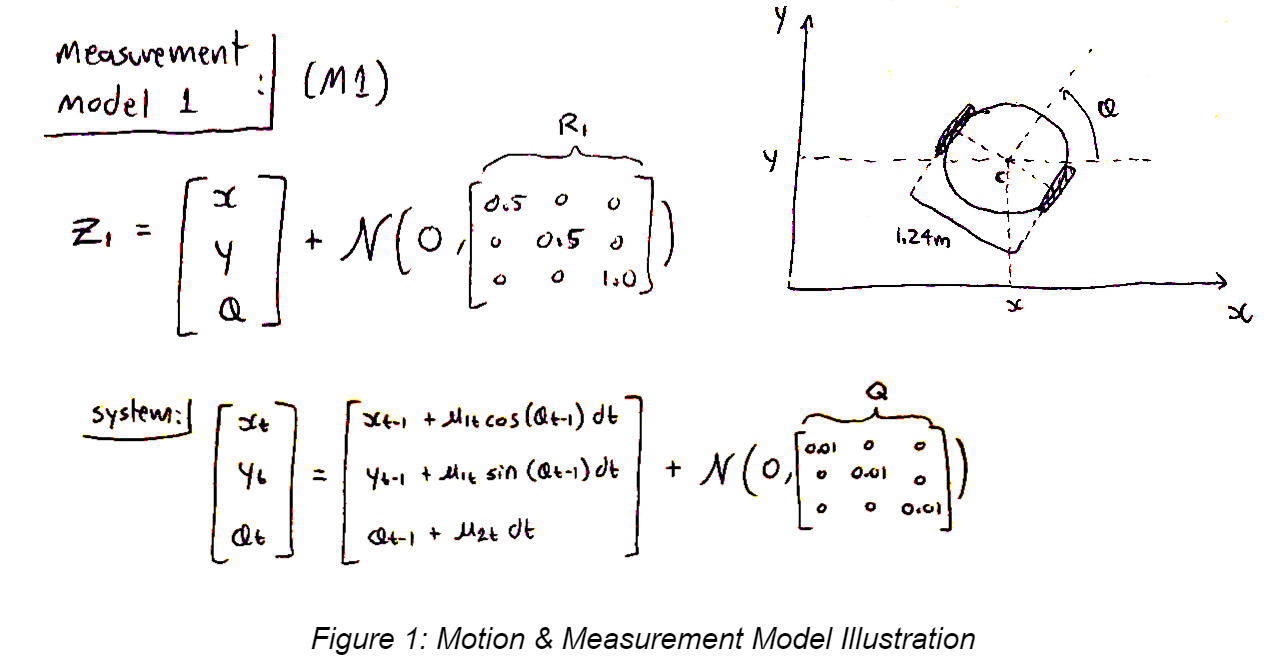 measurement
model 1 : (M1)
R₁
z₁ = [x y θ] + N(0, [0.5 0 0
0 0.5 0
0 0 1.0])
y
θ
y
c
1.24m
x
x
system: Q
[xt yt θt] = [xt-1 + μ1t cos(θt-1) dt
yt-1 + μ1t sin(θt-1) dt
θt-1 + μ2t dt] + N(0, [0.01 0 0
0 0.01 0
0 0 0.01])
Figure 1: Motion & Measurement Model Illustration